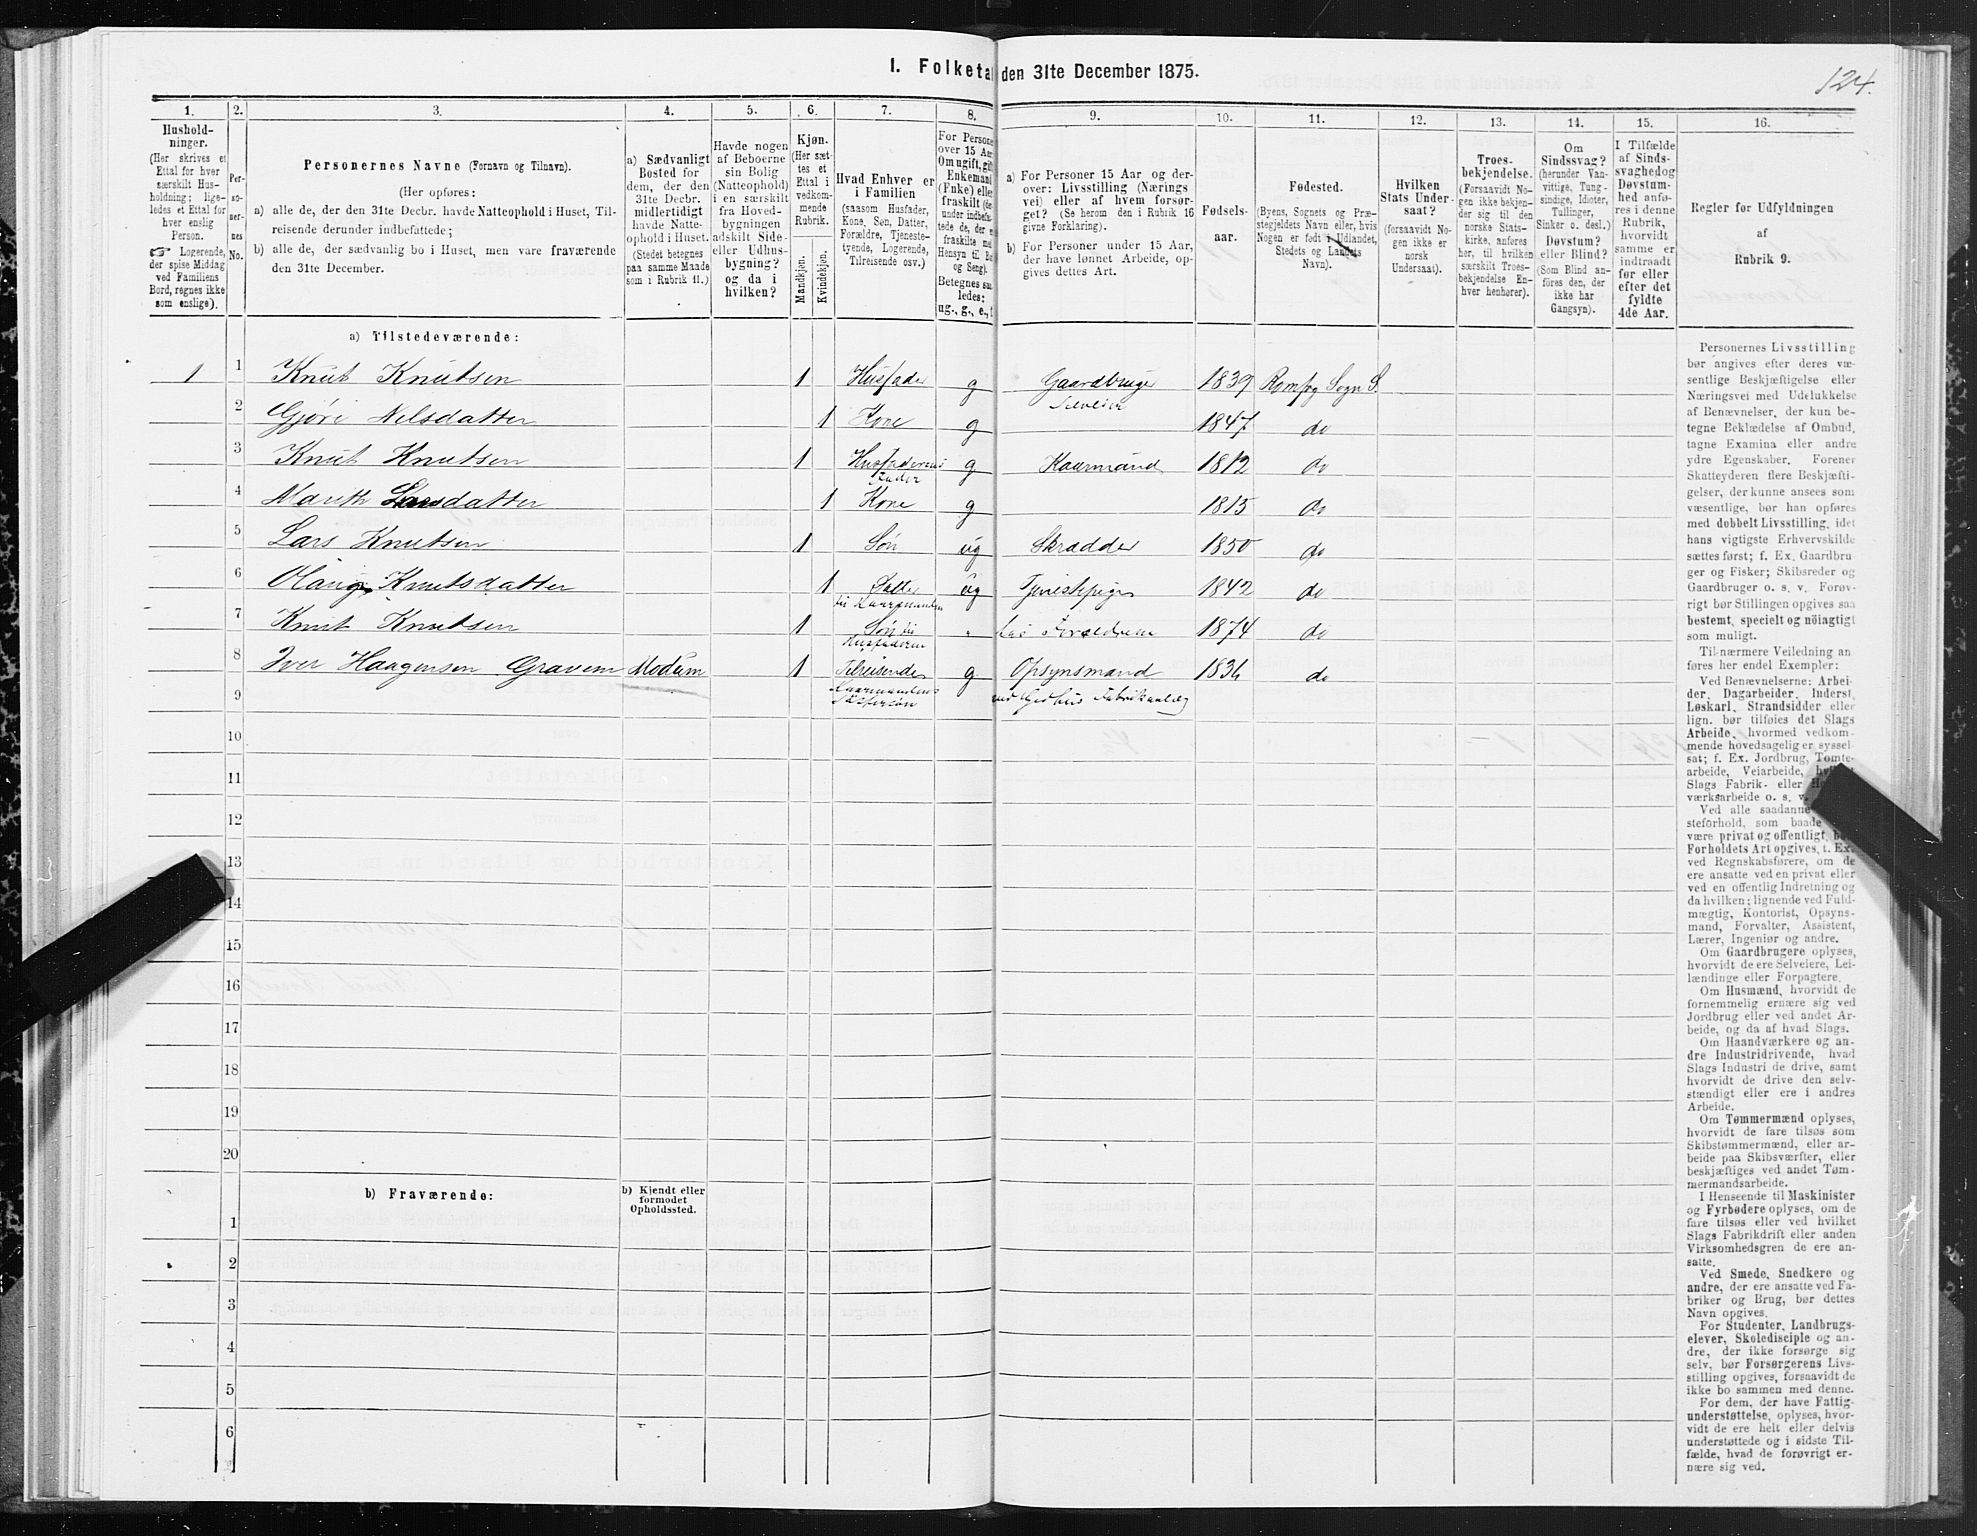 I. Folketal den 31te December 1875.
124.
1. 2. 3. 4. 5. 6. 7. 8. 9. 10. 11. 12. 13. 14. 15. 16.
Hushold-
ninger.
(Her skrives et
Ettal for hver
særskilt Hus-
holdning; lige-
ledes et Ettal for
hver enslig
Person.
☞ Logerende,
der spise Middag
ved Familiens
Bord, regnes ikke
som enslige).
Per-
so-
ner-
nes
No.
Personernes Navne (Fornavn og Tilnavn).
(Her opføres:
a) alle de, der den 31te Decbr. havde Natteophold i Huset, Til-
reisende derunder indbefattede;
b) alle de, der sædvanlig bo i Huset, men vare fraværende
den 31te December.
a) Sædvanligt
Bosted for
dem, der den
31te Decbr.
midlertidigt
havde Natte-
ophold i Huset.
(Stedet betegnes
paa samme Maade
som i Rubrik 11.)
Havde nogen
af Beboerne
sin Bolig
(Natteophold)
i en særskilt
fra Hoved-
bygningen
adskilt Side-
eller Udhus-
bygning?
og da i
hvilken?
Kjøn.
(Her sæt-
tes et
Ettal i
vedkom-
mende
Rubrik.
Mandkjøn.
Kvindekjøn.
Hvad Enhver er
i Familien
(saasom Husfader,
Kone, Søn, Datter,
Forældre, Tjeneste-
tyende, Logerende,
Tilreisende osv.)
For Persone
over 15 Aar
Om ugift, gift
Enkemand
(Enke) eller
fraskilt (der
under indbefat-
tede de, der e
fraskilte med
Hensyn til Bo
og Seng).
Betegnes saa
ledes:
ug., g., e., f
a) For Personer 15 Aar og der-
over: Livsstilling (Nærings-
vei) eller af hvem forsør-
get? (Se herom den i Rubrik 16
givne Forklaring).
b) For Personer under 15 Aar,
der have lønnet Arbeide, op-
gives dettes Art.
Fødsels-
aar.
Fødested.
(Byens, Sognets og Præ-
stegjeldets Navn eller, hvis
Nogen er født i Udlandet,
Stedets og Landets
Navn).
Hvilken
Stats Under-
saat?
(forsaavidt No-
gen ikke er
norsk
Undersaat).
Troes-
bekjendelse.
(Forsaavidt No-
gen ikke bekjen-
der sig til den
norske Stats-
kirke, anføres
her, til hvilken
særskilt Troes-
bekjendelse En-
hver henhører).
Om
Sindssvag?
(herunder Van-
vittige, Tung-
sindige, Idioter,
Tullinger,
Sinker o. desl.)
Døvstum?
eller Blind?
(Som Blind an-
føres den, der
ikke har
Gangsyn).
I Tilfælde
af Sinds-
svaghed og
Døvstum-
hed anfø-
res i denne
Rubrik,
hvorvidt
samme er
indtraadt
før eller
efter det
fyldte
4de Aar.
Regler for Udfyldningen
af
Rubrik 9.
a) Tilstedeværende:
1 1 Knut Knutsen 1 Husfader g Gaardbruger Selveier 1839 Romfog Sogn S.
2 Gjøri Nilsdatter 1 Kone g 1847 do
3 Knut Knutsen 1 Husfaderens Fader g Kaarmand 1812 do
4 Marith Larsdatter 1 Kone g 1815 do
5 Lars Knutsen 1 Søn ug Skrædder 1850 do
6 Olaug Knutsdatter 1 Datter til Kaarmanden ug Tjenestepige 1842 do
7 Knut Knutsen 1 Søn til Husfaderen hos Forældrene 1874 do
8 Iver Haagensen Gravem Modum 1 Tilreisende Kaarmandens Søstersøn g Opsynsmand ved Gjethus Fabrikanlæg 1836 do
9
10
11
12
13
14
15
16
17
18
19
20
b) Fraværende:
b) Kjendt eller
formodet
Opholdssted.
1
2
3
4
5
6
Personernes Livsstilling
bør angives efter deres væ-
sentlige Beskjæftigelse eller
Næringsvei med Udelukkelse
af Benævnelser, der kun be-
tegne Beklædelse af Ombud,
tagne Examina eller andre
ydre Egenskaber. Forener
Skatteyderen flere Beskjæfti-
gelser, der kunne ansees som
væsentlige, bør han opføres
med dobbelt Livsstilling, idet
hans vigtigste Erhvervskilde
sættes først; f. Ex. Gaardbru-
ger og Fisker; Skibsreder og
Gaardbruger o. s. v. Forøv-
rigt bør Stillingen opgives saa
bestemt, specielt og nöiagtigt
som muligt.
Til nærmere Veiledning an-
føres her endel Exempler:
Ved Benævnelserne: Arbei-
der, Dagarbeider, Inderst,
Løskarl, Strandsidder eller
lign. bør tilføies det Slags
Arbeide, hvormed vedkom-
mende hovedsagelig er syssel-
sat; f. Ex. Jordbrug, Tomte-
arbeide, Veiarbeide, hvilket
Slags Fabrik- eller
værksarbeide o. s. v.
Ved alle saadanne
steforhold, som baade
være privat og offentligt, bør
Forholdets Art opgives, t. Ex.
ved Regnskabsførere, om de
ere ansatte ved en privat eller
ved en offentlig Indretning og
da hvilken; lignende ved Fuld-
mægtig, Kontorist, Opsyns-
mand, Forvalter, Assistent,
Lærer, Ingeniør og andre.
Om Gaardbrugere oplyses,
hvorvidt de ere Selveiere, Lei-
lændinge eller Forpagtere.
Om Husmænd, hvorvidt de
fornemmelig ernære sig ved
Jordbrug eller ved andet Ar-
beide, og da af hvad Slags.
Om Haandværkere og an-
dre Industridrivende, hvad
Slags Industri de drive, samt
hvorvidt de drive den selv-
stændigt eller ere i andres
Arbeide.
Om Tømmermænd oplyses,
hvorvidt de fare tilsøs som
Skibstømmermænd, eller ar-
beide paa Skibsværfter, eller
beskjæftiges ved andet Tøm-
mermandsarbeide.
I Henseende til Maskinister
og Fyrbødere oplyses, om de
fare tilsøs eller ved hvilket
Slags Fabrikdrift eller anden
Virksomhedsgren de ere an-
satte.
Ved Smede, Snedkere og
andre, der ere ansatte ved Fa-
briker og Brug, bør dettes
Navn opgives.
For Studenter, Landbrugs-
elever, Skoledisciple og an-
dre, der ikke forsørge sig
selv, bør Forsørgerens Livs-
stilling opgives, forsaavidt de
ikke bo sammen med denne.
For dem, der have Fattig-
understøttelse, oplyses, hvor-
vidt de ere helt eller delvis
understøttede og i sidste Til-
fælde, hvad de forøvrigt er-
nære sig ved.